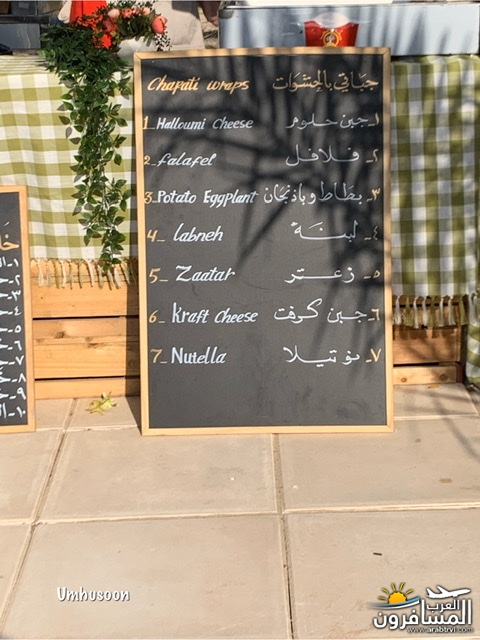 Chapati wraps جباتي بالحشوات
1_ Halloumi Cheese ١_ جبن حلوم
2_ falafel ٢_ فلافل
3_ Potato Eggplant ٣_ بطاط وباذنجان
4_ labneh ٤_ لبنة
5_ Zaatar ٥_ زعتر
6_ Kraft Cheese ٦_ جبن كرفت
7_ Nutella ٧_ نوتيلا
Umhusoon
العرب
المسافرون
www.arabtrvl.com